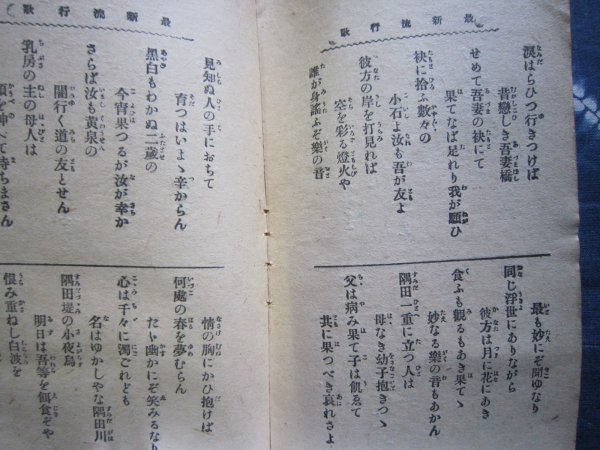 最新流行歌
涙はらひつ行きつけば
昔戀しき吾妻橋
せめて吾妻の袂にて
果てなば足れり我が願ひ
袂に拾ふ數々の
小石よ汝も吾が友よ
彼方の岸を打見れば
空を彩る燈火や
誰が身謠ふぞ樂の音
最も妙にぞ聞ゆなり
同じ浮世にありながら
彼方は月に花にあき
食ふも觀るもあき果てゝ
妙なる樂の音もあかん
隅田一重に立つ人は
母なき幼子抱きつゝ
父は病み果て子は飢ゑて
共に果つべき哀れさよ
最新流行歌
見知ぬ人の手におちて
育つはいまゝ辛からん
黑白もわかぬ二歳の
今宵果つるが汝が幸か
さらば汝も黄泉の
闇行く道の友とせん
乳房の主の母人は
べて待ちまさん
情の胸にかひ抱けば
何處の春を夢むらん
たゞ幽かにぞ笑みるなり
心は千々に濁ごれども
名はゆかしやな隅田川
隅田堤の小夜烏
明日は吾等を餌食ぞや
恨み重ねし白波を